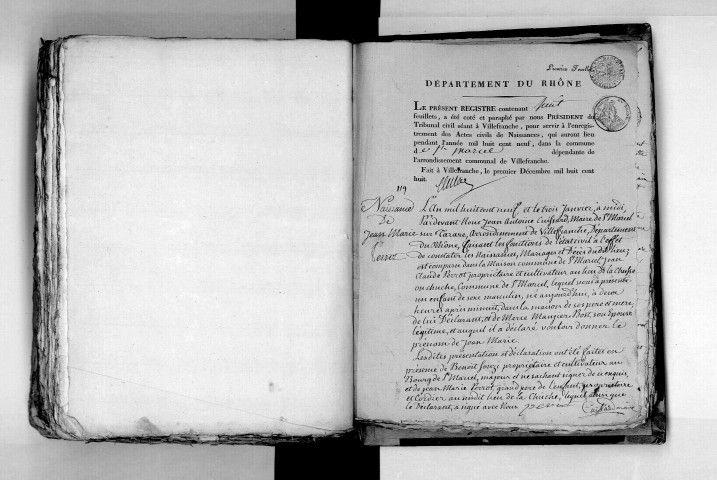 Premier Feuillet
DÉPARTEMENT DU RHÔNE
LE PRÉSENT REGISTRE contenant huit
feuillets, a été coté et paraphé par nous PRÉSIDENT du
Tribunal civil séant à Villefranche, pour servir à l'enregis-
trement des Actes civils de Naissances, qui auront lieu
pendant l'année mil huit cent neuf, dans la commune
de St Marcel dépendante de
l'arrondissement communal de Villefranche.
Fait à Villefranche, le premier Décembre mil huit cent
huit.
Naissance
De
Jean Marie
Perrot
L'An mil huit cent neuf et le trois Janvier, à midi,
Pardevant Nous Jean Antoine Maire de St Marcel
sur Tarare, Arrondissement de Villefranche, Département
du Rhône, faisant les fonctions de l'état civil à l'effet
de constater les Naissances, Mariages et Décès du dit lieu
est comparu dans la Maison commune de St Marcel, Jean
Claude Perrot propriétaire et cultivateur au lieu de la
Commune de St Marcel, lequel nous a présenté
un enfant de sexe masculin, né aujourd'hui, à deux
heures après minuit, dans la maison de ses père et mère,
de lui Déclarant, et de Marie son épouse
légitime, et auquel il a déclaré vouloir donner le
prénom de Jean Marie
Lesdites présentation et déclaration ont été faites en
présence de Benoît propriétaire et cultivateur au
Bourg de St Marcel, majeur et ne sachant signer de ce enquis
et de Jean Marie Perrot grand père de l'enfant, propriétaire
et Cordier au susdit lieu de la lequel ainsi que
le Déclarant, a signé avec Nous perrot